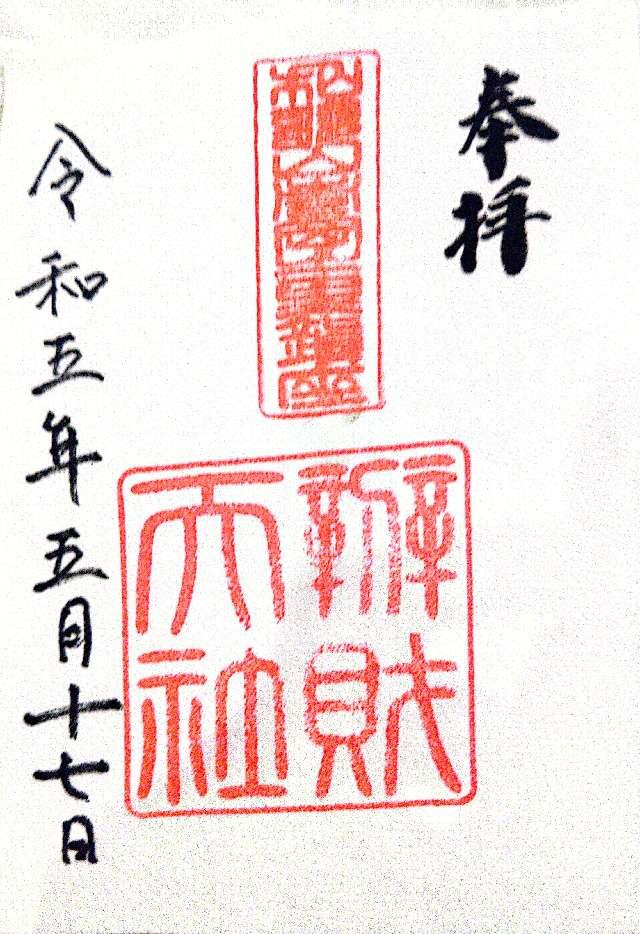 奉拝
辨財
天社
令和五年五月十七日